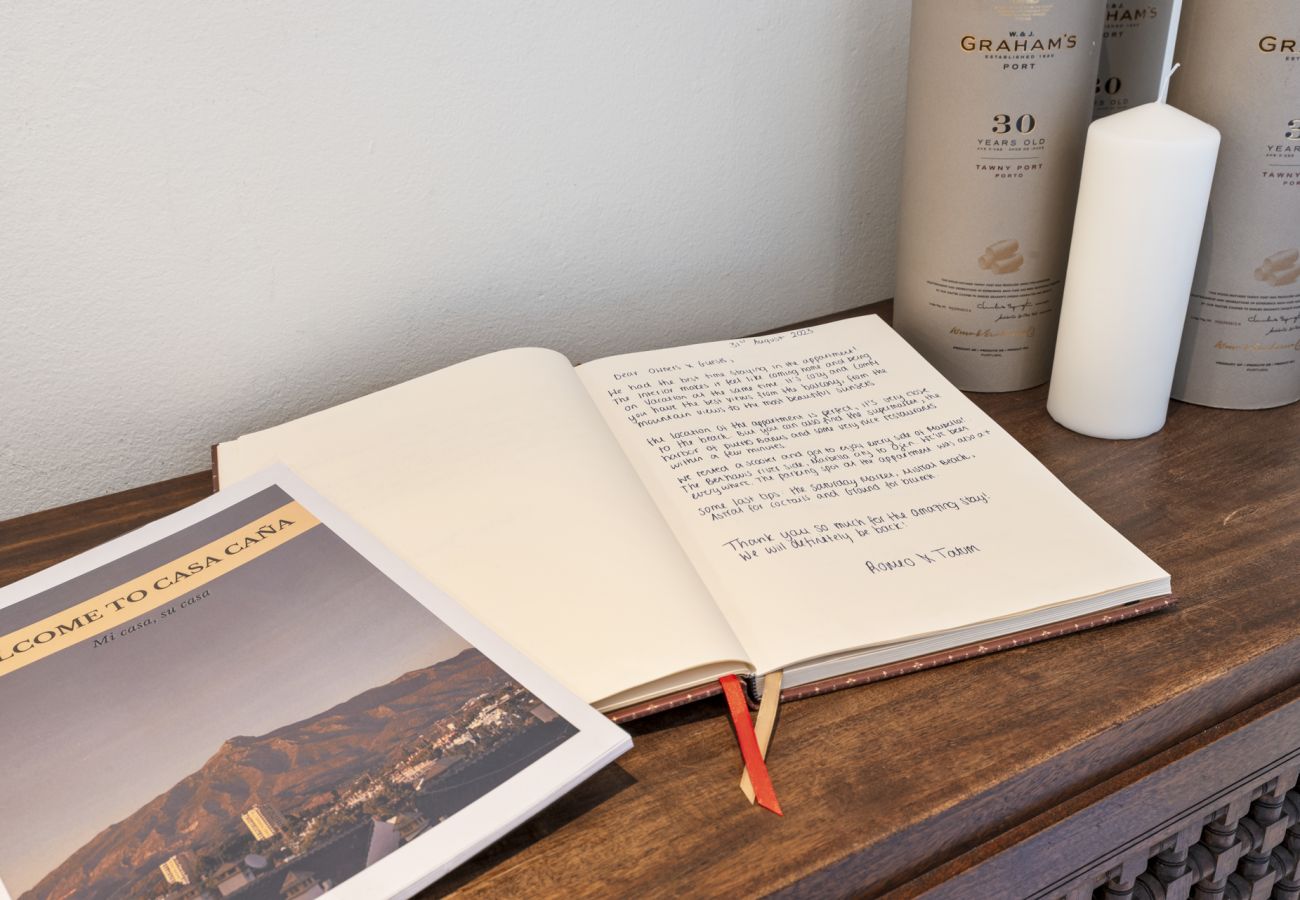 W. & J.
GRAHAM'S
ESTABLISHED 1820
PORT
30
YEARS OLD
TAWNY PORT
PORTO
GRAHAM'S
PORT
30
YEARS OLD
GR
3
YEAR
TAWN
31st August 2023
Dear Owners & Guests,
We had the best time staying in the appartment!
The interior makes it feel like coming home and being
on vacation at the same time. It's cozy and comfy
you have the best views from the balcony, from the
mountain views to the most beautiful sunsets.
The location of the appartment is perfect, it's very close
to the beach. But you can also find the supermarket, the
harbor of Puerto Banus and some very nice restaurants
within a few minutes.
We rented a scooter and got to enjoy every side of Marbella!
The Benhavis river side, Marbella city to Ojén. We've been
everywhere. The parking spot at the appartment was also a+
Some last tips: the Saturday Market, Mistral Beach,
Astral for coctails and Ground for brunch.
Thank you so much for the amazing stay!
We will definitely be back!
Romeo & Tatum
LCOME TO CASA CAÑA
Mi casa, su casa